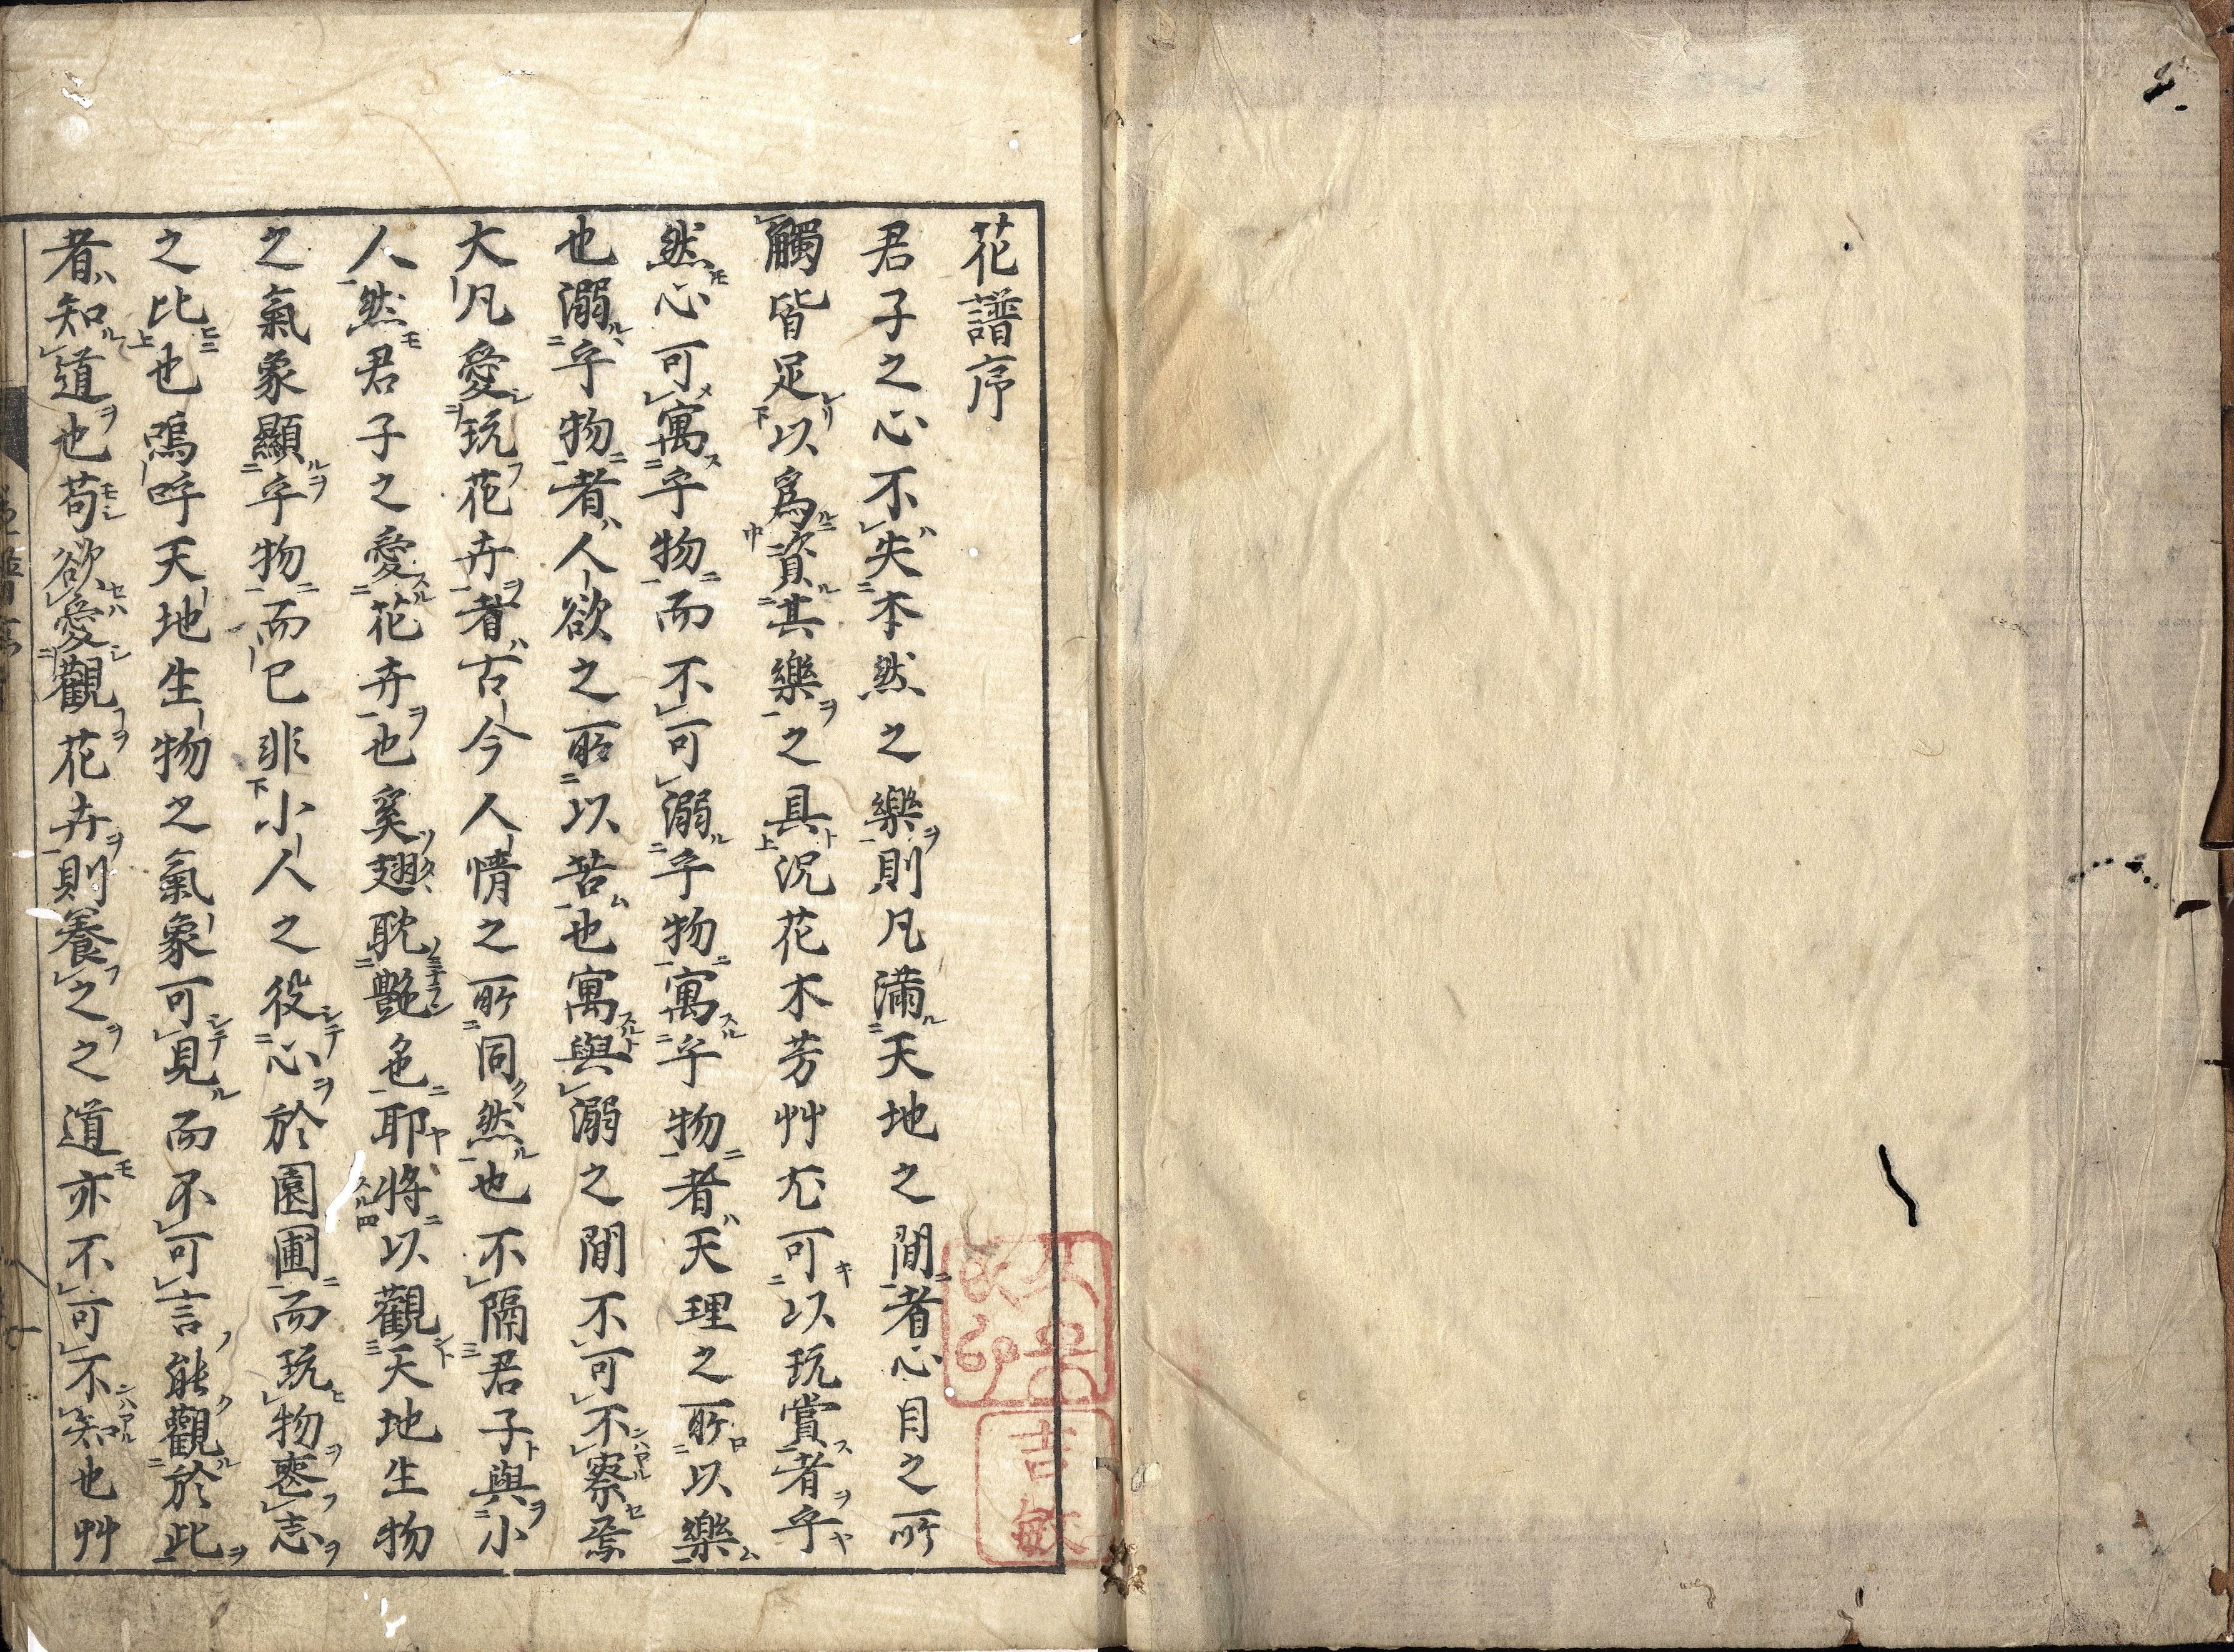 花譜序
君子之心不失本然之樂則凡滿天地之間者心目之所
觸皆足以爲資其樂之具況花木芳艸尤可以玩賞者乎
然心可寓乎物而不可溺乎物寓乎物者天理之所以樂
也溺乎物者人欲之所以苦也寓與溺之間不可不察焉
大凡愛玩花卉者古今人情之所同然也不隔君子與小
人然君子之愛花卉也奚翅耽艶色耶將以觀天地生物
之氣象顯乎物而已非小人之役心於園圃而玩物喪志
之比也嗚呼天地生物之氣象可見而不可言能觀於此
者知道也苟欲愛觀花卉則養之之道亦不可不知也艸
吉
敏